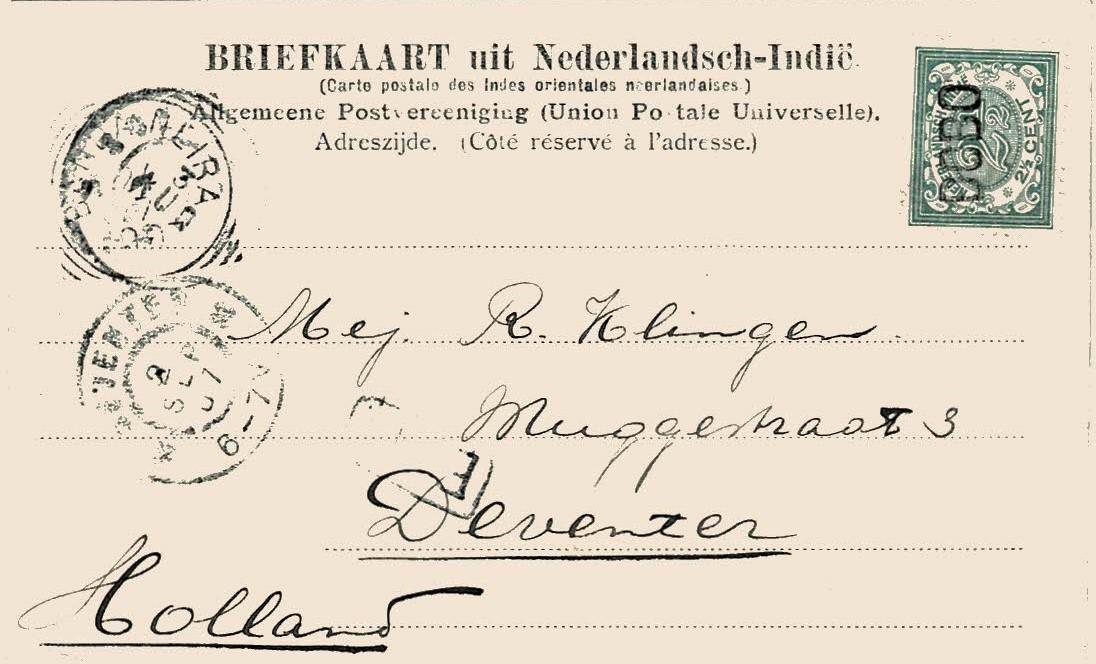 BRIEFKAART uit Nederlandsch-Indië.
(Carte postale des Indes orientales néerlandaises.)
Algemeene Postvereeniging (Union Postale Universelle).
Adreszijde. (Côté réservé à l'adresse.)
NEDERLANDSCH-INDIË
2½
2½ CENT
DOBO
BANDANEIRA
DEVENTER
2
SEP
07
6-7V
Mej. R. Klingen
Muggestraat 3
Deventer
Holland